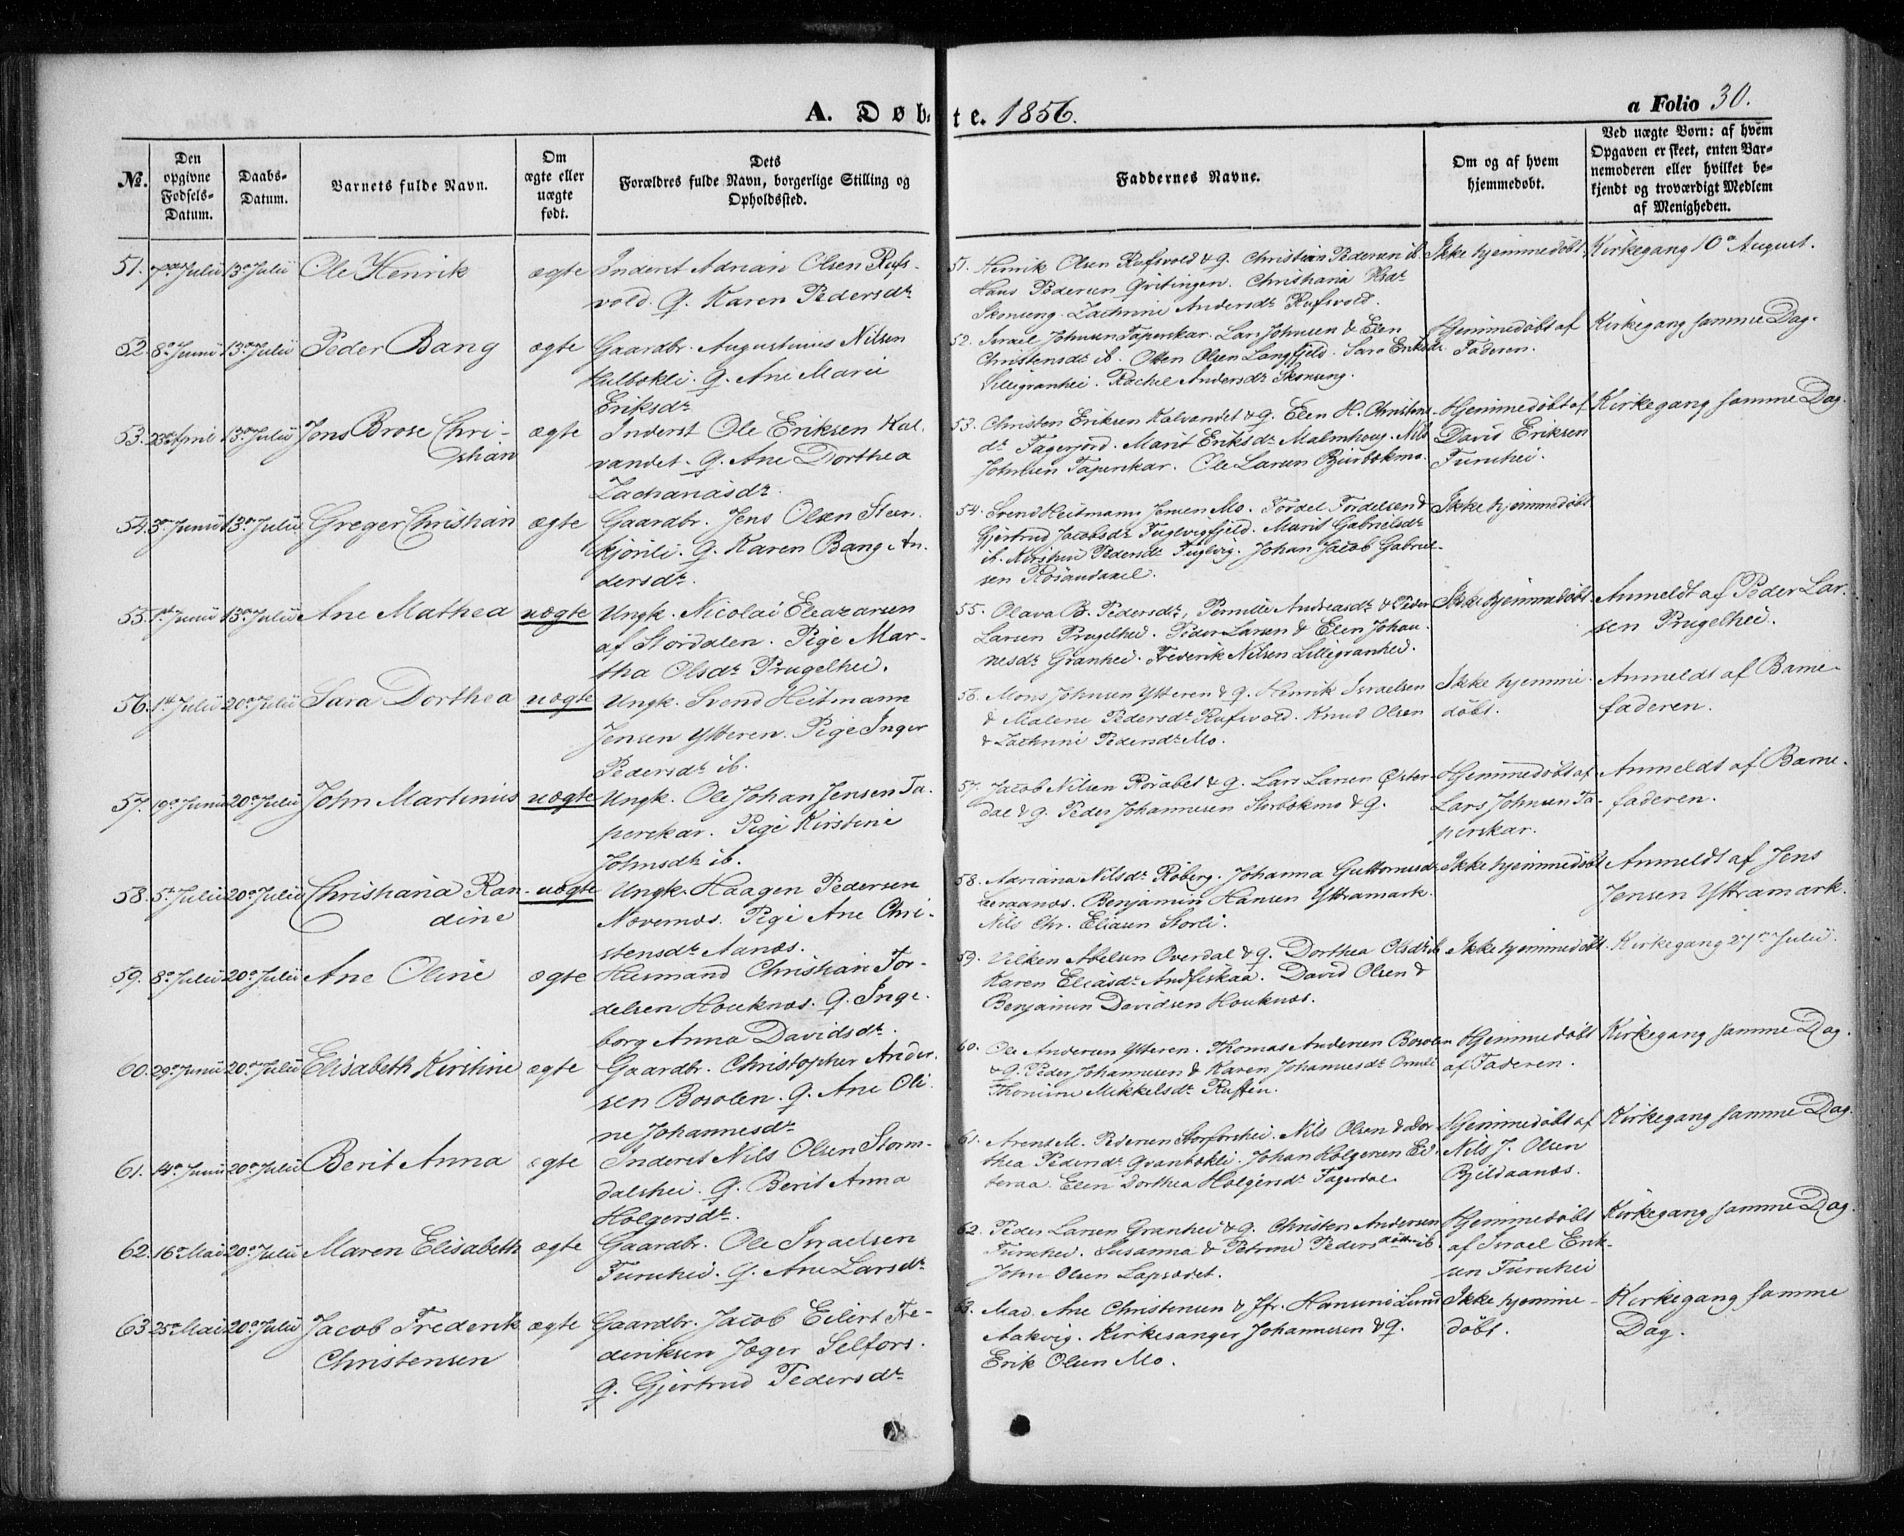 A. Døbte. 1856.
a Folio 30.
No.
Den opgivne Fødsels-Datum.
Daabs-Datum.
Barnets fulde Navn.
Om ægte eller uægte født.
Dets Forældres fulde Navn, borgerlige Stilling og Opholdssted.
Faddernes Navne.
Om og af hvem hjemmedøbt.
Ved uægte Børn: af hvem Opgaven er skeet, enten Barnemoderen eller hvilket bekjendt og troværdigt Medlem af Menigheden.
51. 7de Julii 13de Julii Ole Henrik ægte Inderst Adrian Olsen Rufs-
vold. Q. Karen Pedersdr
51. Henrik Olsen Rufsvold & Q. Christian Pedersen ib.
Hans Pedersen Qvitingen. Christiana
Skonseng. Zachrine Andersdr Rufsvold.
Ikke hjemmedøbt. Kirkegang 10de August.
52. 8de Junii 13de Julii Peder Bang ægte Gaardbr. Augustinus Nilsen
Hulbækli. Q. Ane Marie
Eriksdr
52. Israel Johnsen Taperskar. Lars Johnsen & Elen
Christensdr ib. Olsen Langfjeld. Sara Eriksdr
Lillegranhei. Rachel Andersdr Skonseng.
Hjemmedøbt af
Faderen.
Kirkegang samme Dag.
53. 28de April 13de Julii Jens Brose Chri-
stian ægte Inderst Ole Eriksen Kal-
vandet. Q. Ane Dorthea
Zachariasdr
53. Christen Eriksen Kalvandet & Q. Elen H. Christens-
dr Fagerjord. Marit Eriksdr Malmhoug. Nils
Johnsen Taperskar. Ole Larsen Bjurbækmo.
Hjemmedøbt af
David Eriksen
Furuhei.
Kirkegang samme Dag.
54. 3de Junii 13de Julii Greger Christian ægte Gaardbr. Jens Olsen Steen-
kjønli. Q. Karen Bang An-
dersdr.
54. Svend Heitmann Jensen Mo. Tordel Tordelsen &
Gjertrud Jacobsdr Fuglvigfjeld. Marit Gabrielsdr
ib. Kirsten Pedersdr Fuglvig. Johan Jacob Gabriel-
sen Røsaudaxel.
Ikke hjemmedøbt
55. 1ste Junii 13de Julii Ane Mathea uægte Ungk. Nicolai Eleazarsen
af Stordalen. Pige Mar-
tha Olsdr Prugelhei.
55. Olava B. Pedersdr, Pernille Andreasdr & Peder
Larsen Prugelhei. Peder Larsen & Elen Johan-
nesdr Granhei. Frederik Nilsen Lillegranhei.
Ikke hjemmedøbt.
Anmeldt af Peder Lar-
sen Prugelhei.
56. 1ste Julii 20de Julii Sara Dorthea uægte Ungk. Svend Heitmann
Jensen Ytteren. Pige Inger
Pedersdr ib.
56. Mons Johnsen Ytteren & Q. Henrik Israelsen
& Malene Pedersdr Rufsvold. Knud Olsen
& Zachrine Pedersdr Mo.
Ikke hjemme-
døbt.
Anmeldt af Barne-
faderen.
57. 19de Junii 20de Julii John Martinus uægte Ungk. Ole Johan Jensen Ta-
perskar. Pige Kirstine
Johnsdr ib.
57. Jacob Nilsen Rørabet & Q. Lars Larsen Øster-
dal & Q. Peder Johannesen Storbækmo & Q.
Hjemmedøbt af
Lars Johnsen Ta-
perskar.
Anmeldt af Barne-
faderen.
58. 5te Julii 20de Julii Christiana Ran-
dine uægte Ungk. Haagen Pedersen
Nævernæs. Pige Ane Chri-
stensdr Aanæs.
58. Adriana Nilsdr Røberg. Johanna Guttormsdr
Benjamin Hansen Yttramark.
Nils Chr. Eliasen Storli.
Ikke hjemmedøbt
Anmeldt af Jens
Jensen Yttramark.
59. 8de Julii 20de Julii Ane Oline ægte Husmand Christian Tor-
delsen Houknæs. Q. Inge-
borg Anna Davidsdr.
59. Vilken Abelsen Overdal & Q. Dorthea Olsdr ib.
Karen Eliasdr Andfiskaa. David Olsen &
Benjamin Davidsen Houknæs.
Ikke hjemmedøbt. Kirkegang 27de Julii.
60. 29de Junii 20de Julii Elisabeth Kirstine ægte Gaardbr. Christopher Ander-
sen Bosolen. Q. Ane Oli-
ne Johannesdr
60. Ole Andersen Ytteren. Thomas Andersen Bosolen
& Q. Peder Johannesen & Karen Johannesdr Ormli
Thomine Mikkelsdr Ruften.
Hjemmedøbt
af Faderen.
Kirkegang samme Dag.
61. 14de Junii 20de Julii Berit Anna ægte Inderst Nils Olsen Storm-
dalshei. Q. Berit Anna
Holgersdr.
61. Arent M. Pedersen Storforshei. Nils Olsen & Dor-
thea Pedersdr Granbækli. Johan Holgersen Ei-
teraa. Elen Dorthea Holgersdr Fagerdal.
Hjemmedøbt af
Nils J. Olsen
Bjeldaanæs.
Kirkegang samme Dag.
62. 16de Mai 20de Julii Maren Elisabeth ægte Gaardbr. Ole Israelsen
Furuhei. Q. Ane Larsdr
62. Peder Larsen Granhei & Q. Christen Andersen
Furuhei. Susanna & Petrine Pedersdøttre ib.
John Olsen Lapsædet.
Hjemmedøbt
af Israel Erik-
sen Furuhei
Kirkegang samme Dag.
63. 25de Mai 20de Julii Jacob Frederik
Christensen ægte Gaardbr. Jacob Eilert Fre-
deriksen Jæger Selfors.
Q. Gjertrud Pedersdr
63. Mad. Ane Christensen & Jfr. Hansine Lund
Aakvig. Kirkesanger Johannesen & Q.
Erik Olsen Mo.
Ikke hjemme-
døbt.
Kirkegang samme
Dag.